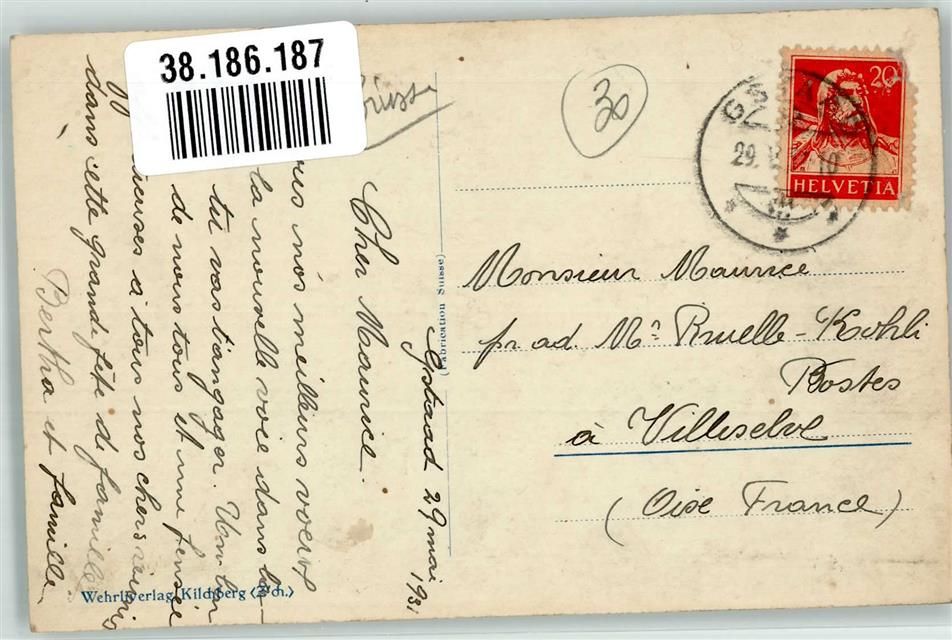 38.186.187
30
GSTAAD
29.
20
HELVETIA
Monsieur Maurice
pr ad. Mr Ruelle-Kohli
Postes
à Villeselve
(Oise France)
(Fabrication Suisse)
Wehrliverlag Kilchberg (Zch.)
Gstaad 29 mai 1931
Cher Maurice.
nos meilleurs voeux
la nouvelle voie dans la-
tu vas t'engager. Un
de nous tous et une pensée
à tous nos chers réunis
dans cette grande fête de famille
Bertha et famille.